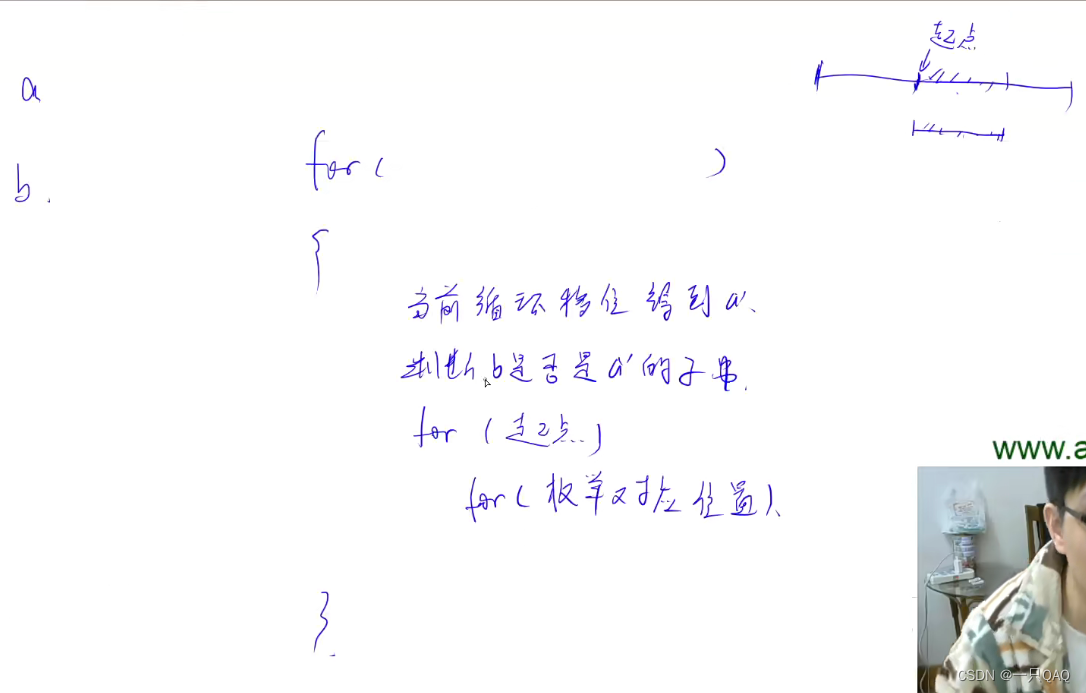 起点
a
for ( )
b.
{
当前循环移位得到 a'.
判断 b是否是a'的子串.
for (起点..)
for (枚举对应位置).
www.a
}
CSDN @一只QAQ